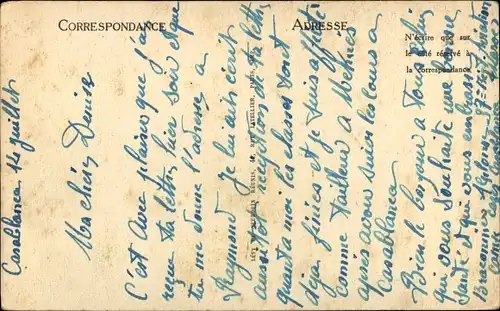 CORRESPONDANCE
ADRESSE
N'écrire que sur
le côté réservé à
la correspondance
Casablanca 14 juillet
Ma chère Denise
C'est avec plaisir que j'ai
reçu ta lettre hier soir et que
tu me donne l'adresse a
Raymond je lui ait écrit
aussi ta lettre
quant a moi les classes sont
deja finies et je suis affecté
comme tailleur a Meknes
après avoir suivi les cours a
Casablanca
Bien le bonjour a Tous
qui vous souhaite une bonne
Santé et qui vous embrasse